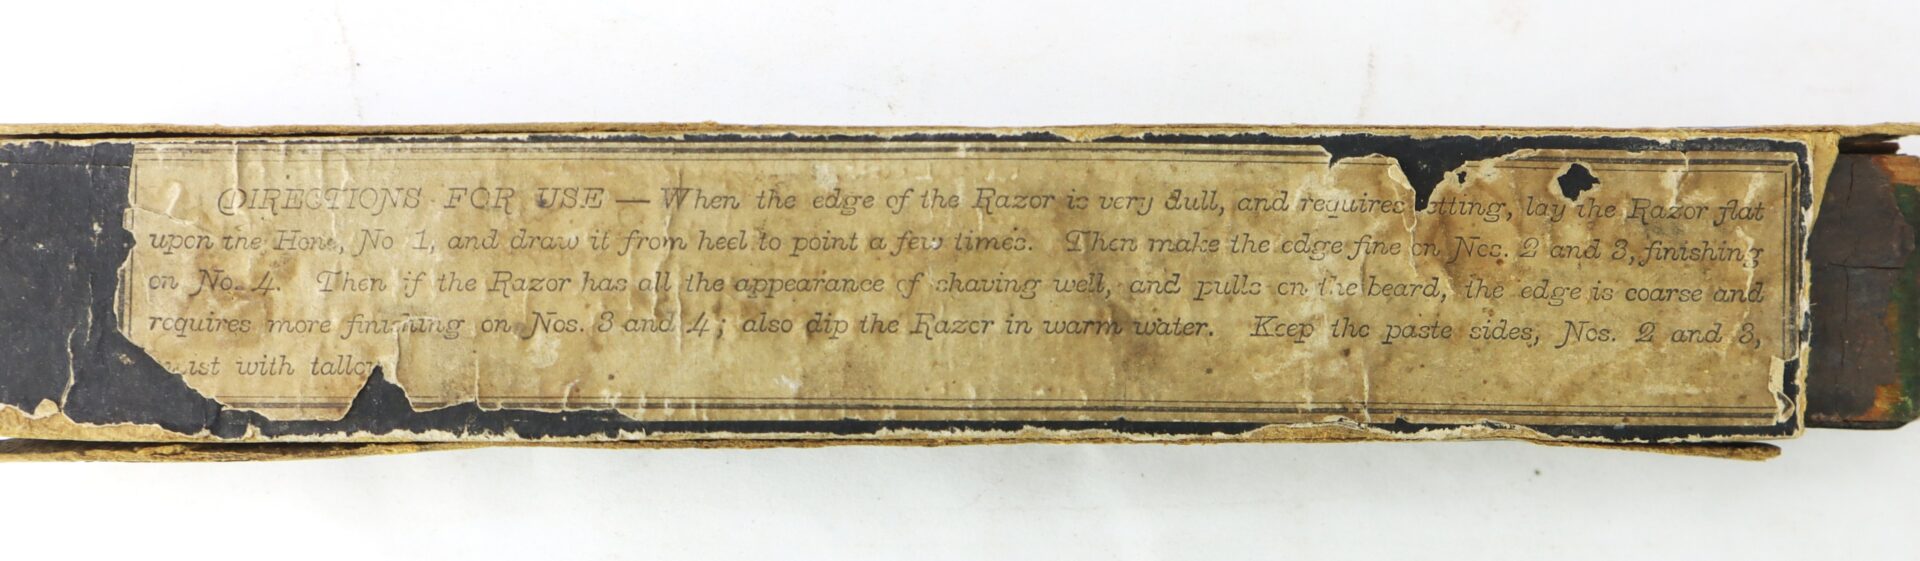 DIRECTIONS FOR USE — When the edge of the Razor is very dull, and requires tting, lay the Razor flat
upon the Hone, No 1, and draw it from heel to point a few times. Then make the edge fine on Nos. 2 and 3, finishing
on No. 4. Then if the Razor has all the appearance of shaving well, and pulls on the beard, the edge is coarse and
requires more finishing on Nos. 3 and 4; also dip the Razor in warm water. Keep the paste sides, Nos. 2 and 3,
with tallow